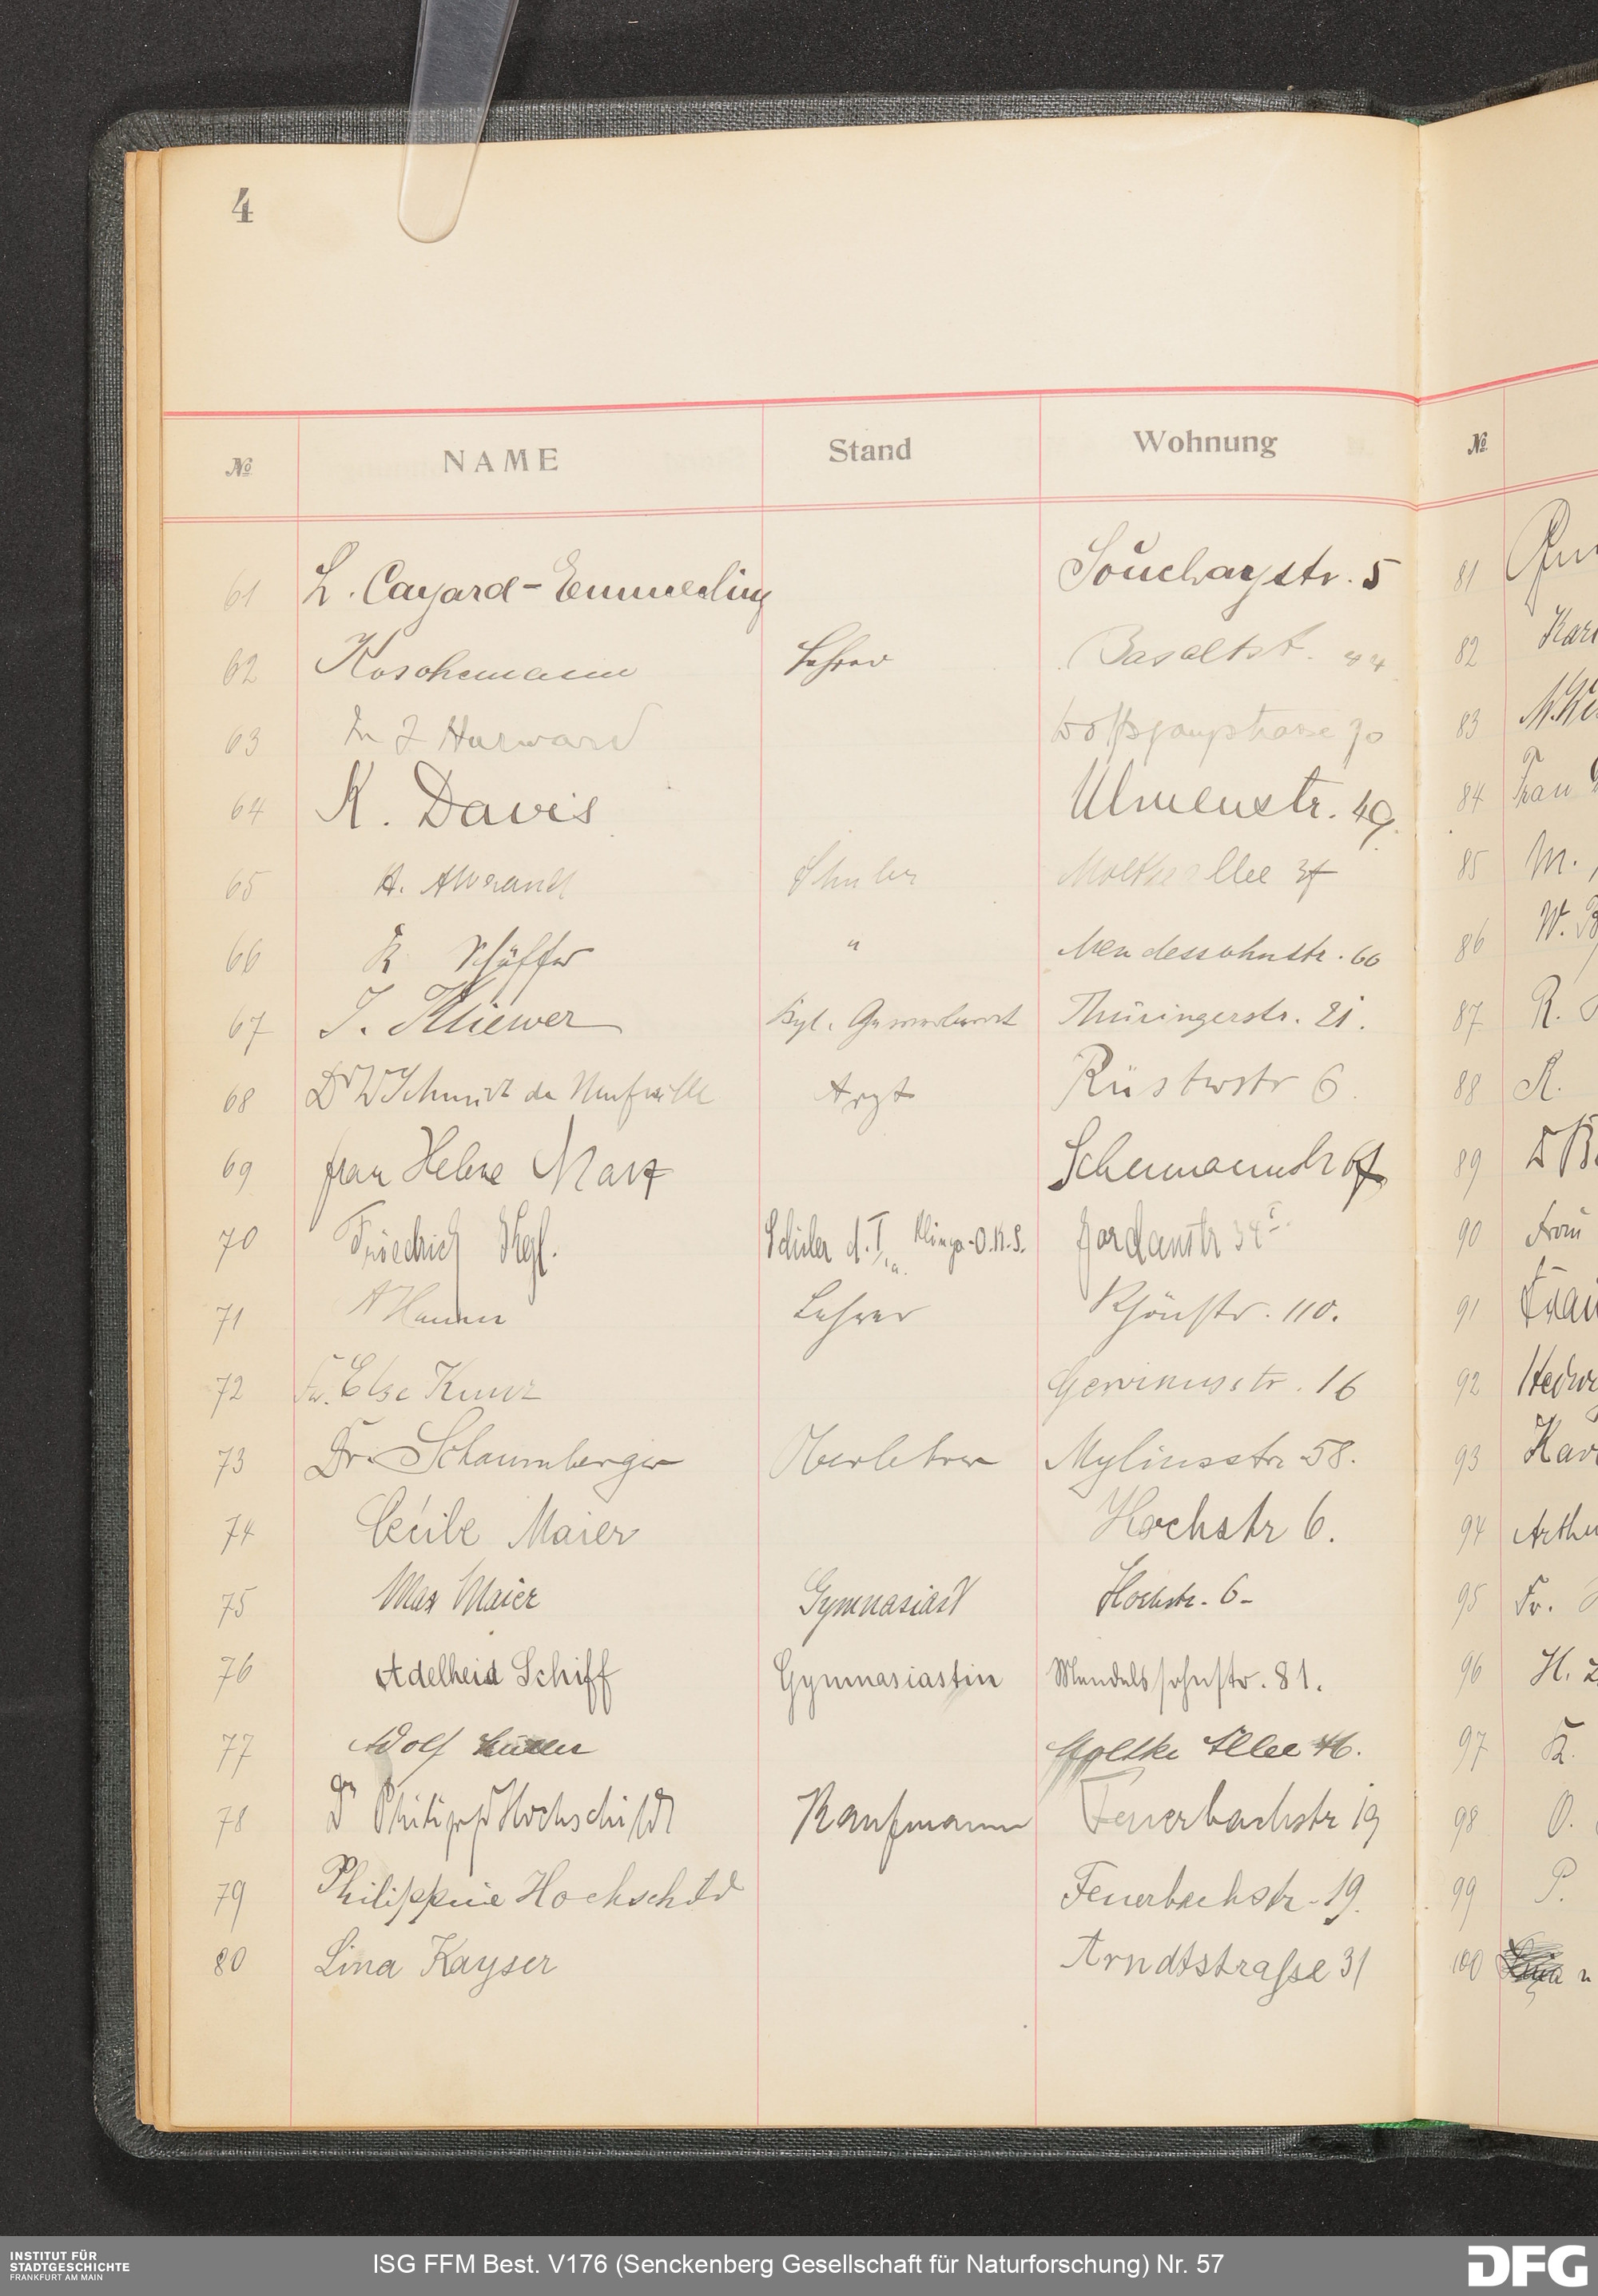 4
№ NAME Stand Wohnung №
61 L. Cayard-Emmerling Souchaystr. 5 81
62 Koschemann Lehrer Basaltstr. 44 82 Karl
63 Harward Wolfsgangstrasse 70 83
64 K. Davis Ulmenstr. 49. 84 Frau
65 A. Schüler Moltkeallee 85 M.
66 K Schäffer " Mendelssohnstr. 60 86 W.
67 J. Kliewer Kgl. Gewerberat Thüringerstr. 21. 87 R.
68 Dr W Schmidt de Neufville Arzt Rüsterstr 6. 88 A.
69 Frau Helene Marx Schumannstr 89
70 Friedrich Schüler d. I.a. Klinger-O.R.S. Jordanstr 34 90 Frau
71 A Hamm Lehrer Rhönstr. 110. 91 Frau
72 Fr. Else Kunz Gervinusstr. 16 92 Hedwig
73 Dr. Schaumberger Oberlehrer Myliusstr. 58. 93 Karl
74 Cécile Maier Hochstr 6. 94 Arthur
75 Max Maier Gymnasiast Hochstr. 6- 95 Fr.
76 Adelheid Schiff Gymnasiastin Mendelssohnstr. 81. 96 H.
77 Adolf Moltke Allee 46. 97 K.
78 Dr Philipp Hochschild Kaufmann Feuerbachstr 19 98 O.
79 Philippine Hochschild Feuerbachstr. 19. 99 P.
80 Lina Kayser Arndtstraße 31 100
INSTITUT FÜR
STADTGESCHICHTE
FRANKFURT AM MAIN
ISG FFM Best. V176 (Senckenberg Gesellschaft für Naturforschung) Nr. 57
DFG